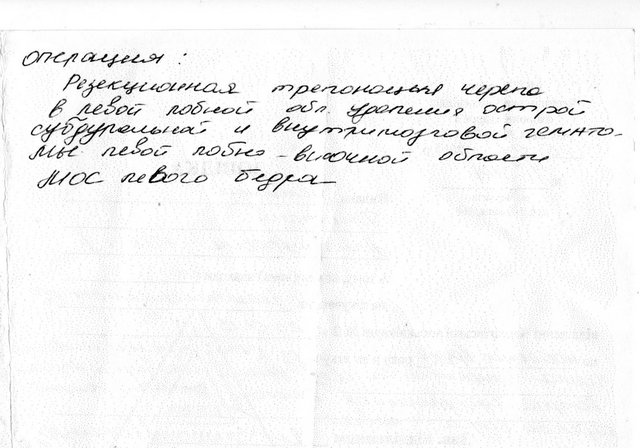 операция:
Резекционная трепонация черепа
в левой лобной обл. удаления острой
субдуральной и внутримозговой гемато-
мы левой лобно-височной области
МОС левого бедра